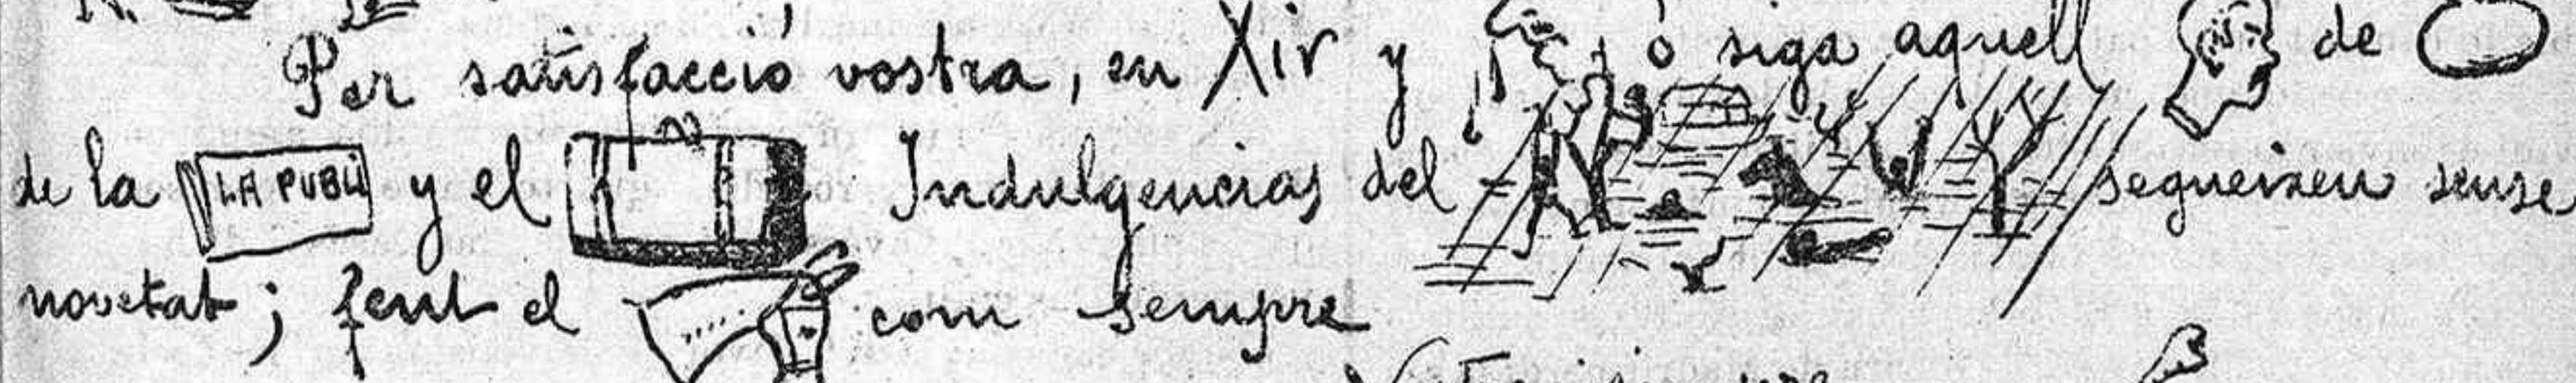 Per satisfacció vostra, en Xir y ó siga aquell de
de la LA PUBLI y el Indulgencias del segueixen sense
novetat; fent el com sempre